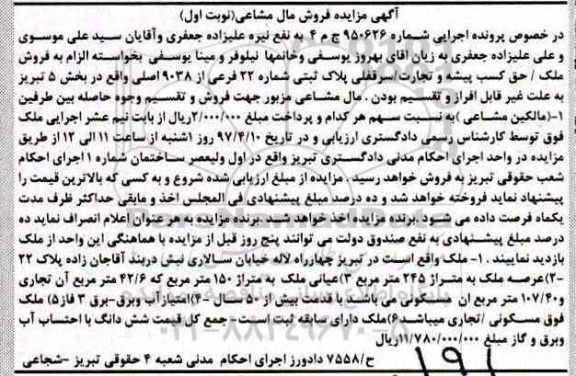 آگهی مزایده فروش مال مشاعی(نوبت اول)
در خصوص پرونده اجرایی شماره ۹۵۰۶۲۶ ج م ۴ به نفع نیره علیزاده جعفری وآقایان سید علی موسوی
و علی علیزاده جعفری به زیان آقای بهروز یوسفی وخانمها نیلوفر و مینا یوسفی بخواسته الزام به فروش
ملک / حق کسب پیشه و تجارت/سرقفلی پلاک ثبتی شماره ۲۲ فرعی از ۹۰۳۸ اصلی واقع در بخش ۵ تبریز
به علت غیر قابل افراز و تقسیم بودن . مال مشاعی مزبور جهت فروش و تقسیم وجوه حاصله بین طرفین
۱-(مالکین مشاعی )به نسبت سهم هر کدام و پرداخت مبلغ ۲/۰۰۰/۰۰۰ریال از بابت نیم عشر اجرایی ملک
فوق توسط کارشناس رسمی دادگستری ارزیابی و در تاریخ ۹۷/۴/۱۰ روز ۱شنبه از ساعت ۱۱ الی ۱۲ از طریق
مزایده در واحد اجرای احکام مدنی دادگستری تبریز واقع در اول ولیعصر ساختمان شماره ۱ اجرای احکام
شعب حقوقی تبریز به فروش خواهد رسید . مزایده از مبلغ ارزیابی شده شروع و به کسی که بالاترین قیمت را
پیشنهاد نماید فروخته خواهد شد و ده درصد مبلغ پیشنهادی فی المجلس اخذ و مابقی حداکثر ظرف مدت
یکماه فرصت داده می شود .برنده مزایده اخذ خواهد شد. برنده مزایده به هر عنوان اعلام انصراف نماید ده
درصد مبلغ پیشنهادی به نفع صندوق دولت می توانند پنج روز قبل از مزایده با هماهنگی این واحد از ملک
بازدید نمایند . ۱- ملک واقع است در تبریز چهارراه لاله خیابان سالاری نبش دربند آقاجان زاده پلاک ۲۲
-۲)عرصه ملک به متراژ ۲۴۵ متر مربع ۳)عیانی ملک به متراژ ۱۵۰ متر مربع که ۴۲/۶ متر مربع آن تجاری
و۱۰۷/۴۰ متر مربع ان مسکونی می باشد با قدمت بیش از ۵۰ سال -۴)امتیاز آب وبرق-برق ۳ فاز۵) ملک
فوق مسکونی /تجاری میباشد۶)ملک دارای سابقه ثبت است- جمع کل قیمت شش دانگ با احتساب آب
وبرق و گاز مبلغ ۱۱/۷۸۰/۰۰۰/۰۰۰ریال
ح/۷۵۵۸ دادورز اجرای احکام مدنی شعبه ۴ حقوقی تبریز -شجاعی
۰۲۱-۸۸۳۴۹۶۷۰-۵